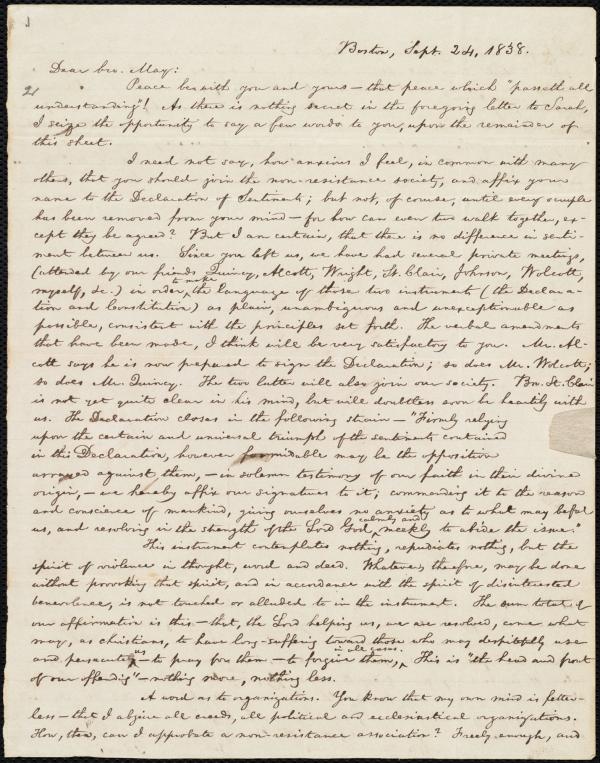 Boston, Sept. 24, 1838.
Dear bro. May:
Peace be with you and yours — that peace which "passeth all
understanding"! As there is nothing secret in the foregoing letter to Sarah,
I seize the opportunity to say a few words to you, upon the remainder of
this sheet.
I need not say, how anxious I feel, in common with many
others, that you should join the non-resistance society, and affix your
name to the Declaration of Sentiments; but not, of course, until every scruple
has been removed from your mind — for how can even two walk together, ex-
cept they be agreed? But I am certain, that there is no difference in senti-
ment between us. Since you left us, we have had several private meetings,
(attended by our friends Quincy, Alcott, Wright, St. Clair, Johnson, Wolcott,
myself, &c.) in order to make the language of those two instruments (the Declara-
tion and Constitution) as plain, unambiguous and unexceptionable as
possible, consistent with the principles set forth. The verbal amendments
that have been made, I think will be very satisfactory to you. Mr. Al-
cott says he is now prepared to sign the Declaration; so does Mr. Wolcott;
so does Mr. Quincy. The two latter will also join our society. Bro. St. Clair
is not yet quite clear in his mind, but will doubtless soon be heartily with
us. The Declaration closes in the following strain — "Firmly relying
upon the certain and universal triumph of the sentiments contained
in this Declaration, however formidable may be the opposition
arrayed against them, — in solemn testimony of our faith in their divine
origin, — we hereby affix our signatures to it; commending it to the reason
and conscience of mankind, giving ourselves no anxiety as to what may befal
us, and resolving in the strength of the Lord God, calmly and meekly to abide the issue."
This instrument contemplates nothing, repudiates nothing, but the
spirit of violence in thought, word and deed. Whatever, therefore, may be done
without provoking that spirit, and in accordance with the spirit of disinterested
benevolence, is not touched or alluded to in the instrument. The sum total of
our affirmation is this — that, the Lord helping us, we are resolved, come what
may, as christians, to have long-suffering toward those who may despitefully use
and persecute us — to pray for them — to forgive them, in all cases. This is "the head and front
of our offending" — nothing more, nothing less.
A word as to organizations. You know that my own mind is fetter-
less — that I abjure all creeds, all political and ecclesiastical organizations.
How, then, can I approbate a non-resistance association? Freely enough, and